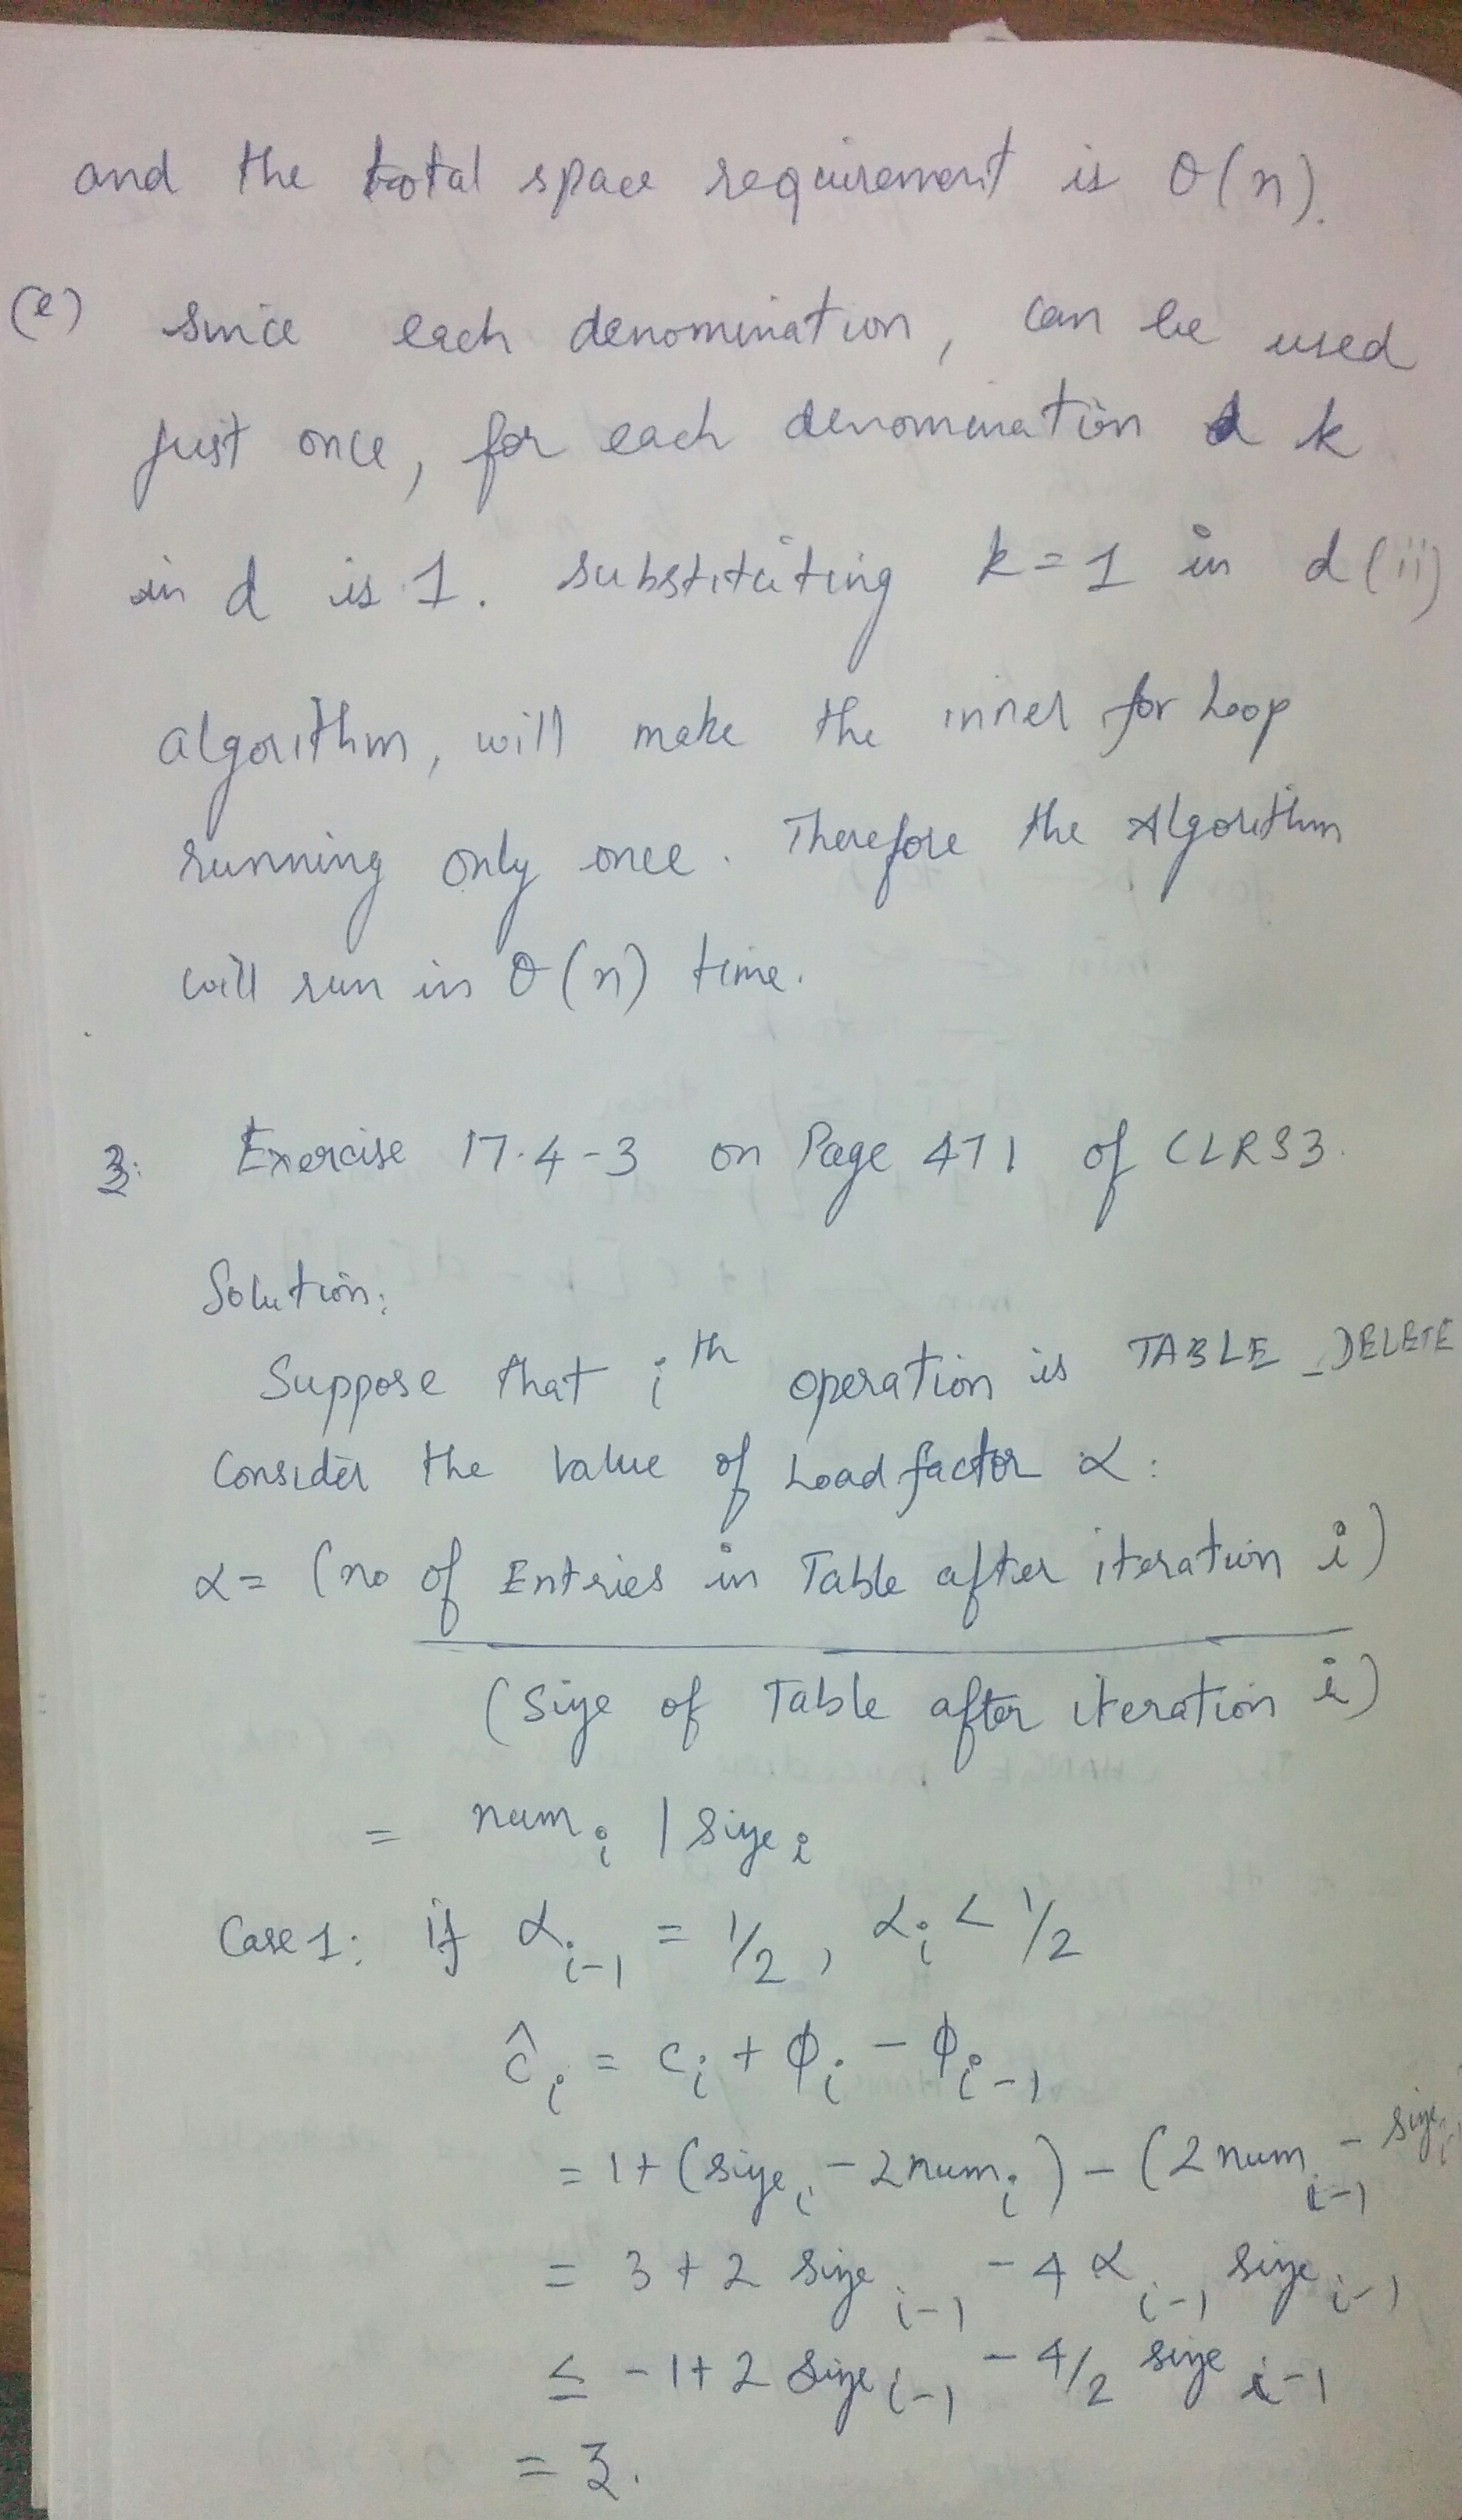 and the total space requirement is θ(n).
(e) since each denomination, can be used
just once, for each denomination d k
in d is 1. substituting k=1 in d(ii)
algorithm, will make the inner for Loop
running only once. Therefore the Algorithm
will run in θ(n) time.
3. Exercise 17.4-3 on Page 471 of CLRS3.
Solution:
Suppose that i^th operation is TABLE_DELETE
Consider the value of Load factor α:
α = (no of Entries in Table after iteration i)
(Size of Table after iteration i)
= num_i / size_i
Case 1: if α_{i-1} = 1/2, α_i < 1/2
ĉ_i = c_i + ϕ_i - ϕ_{i-1}
= 1 + (size_i - 2num_i) - (2num_{i-1} - size_i
= 3 + 2 size_{i-1} - 4 α_{i-1} size_{i-1}
≤ -1 + 2 size_{i-1} - 4/2 size_{i-1}
= 3.